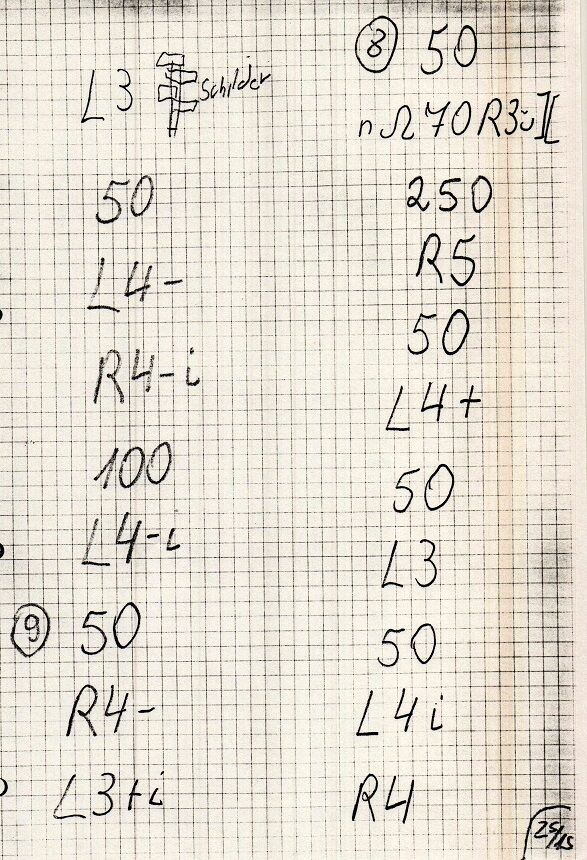 L3 Schilder
50
L4-
R4-i
100
L4-i
9 50
R4-
L3+i
8 50
250
R5
50
L4+
50
L3
50
L4i
R4